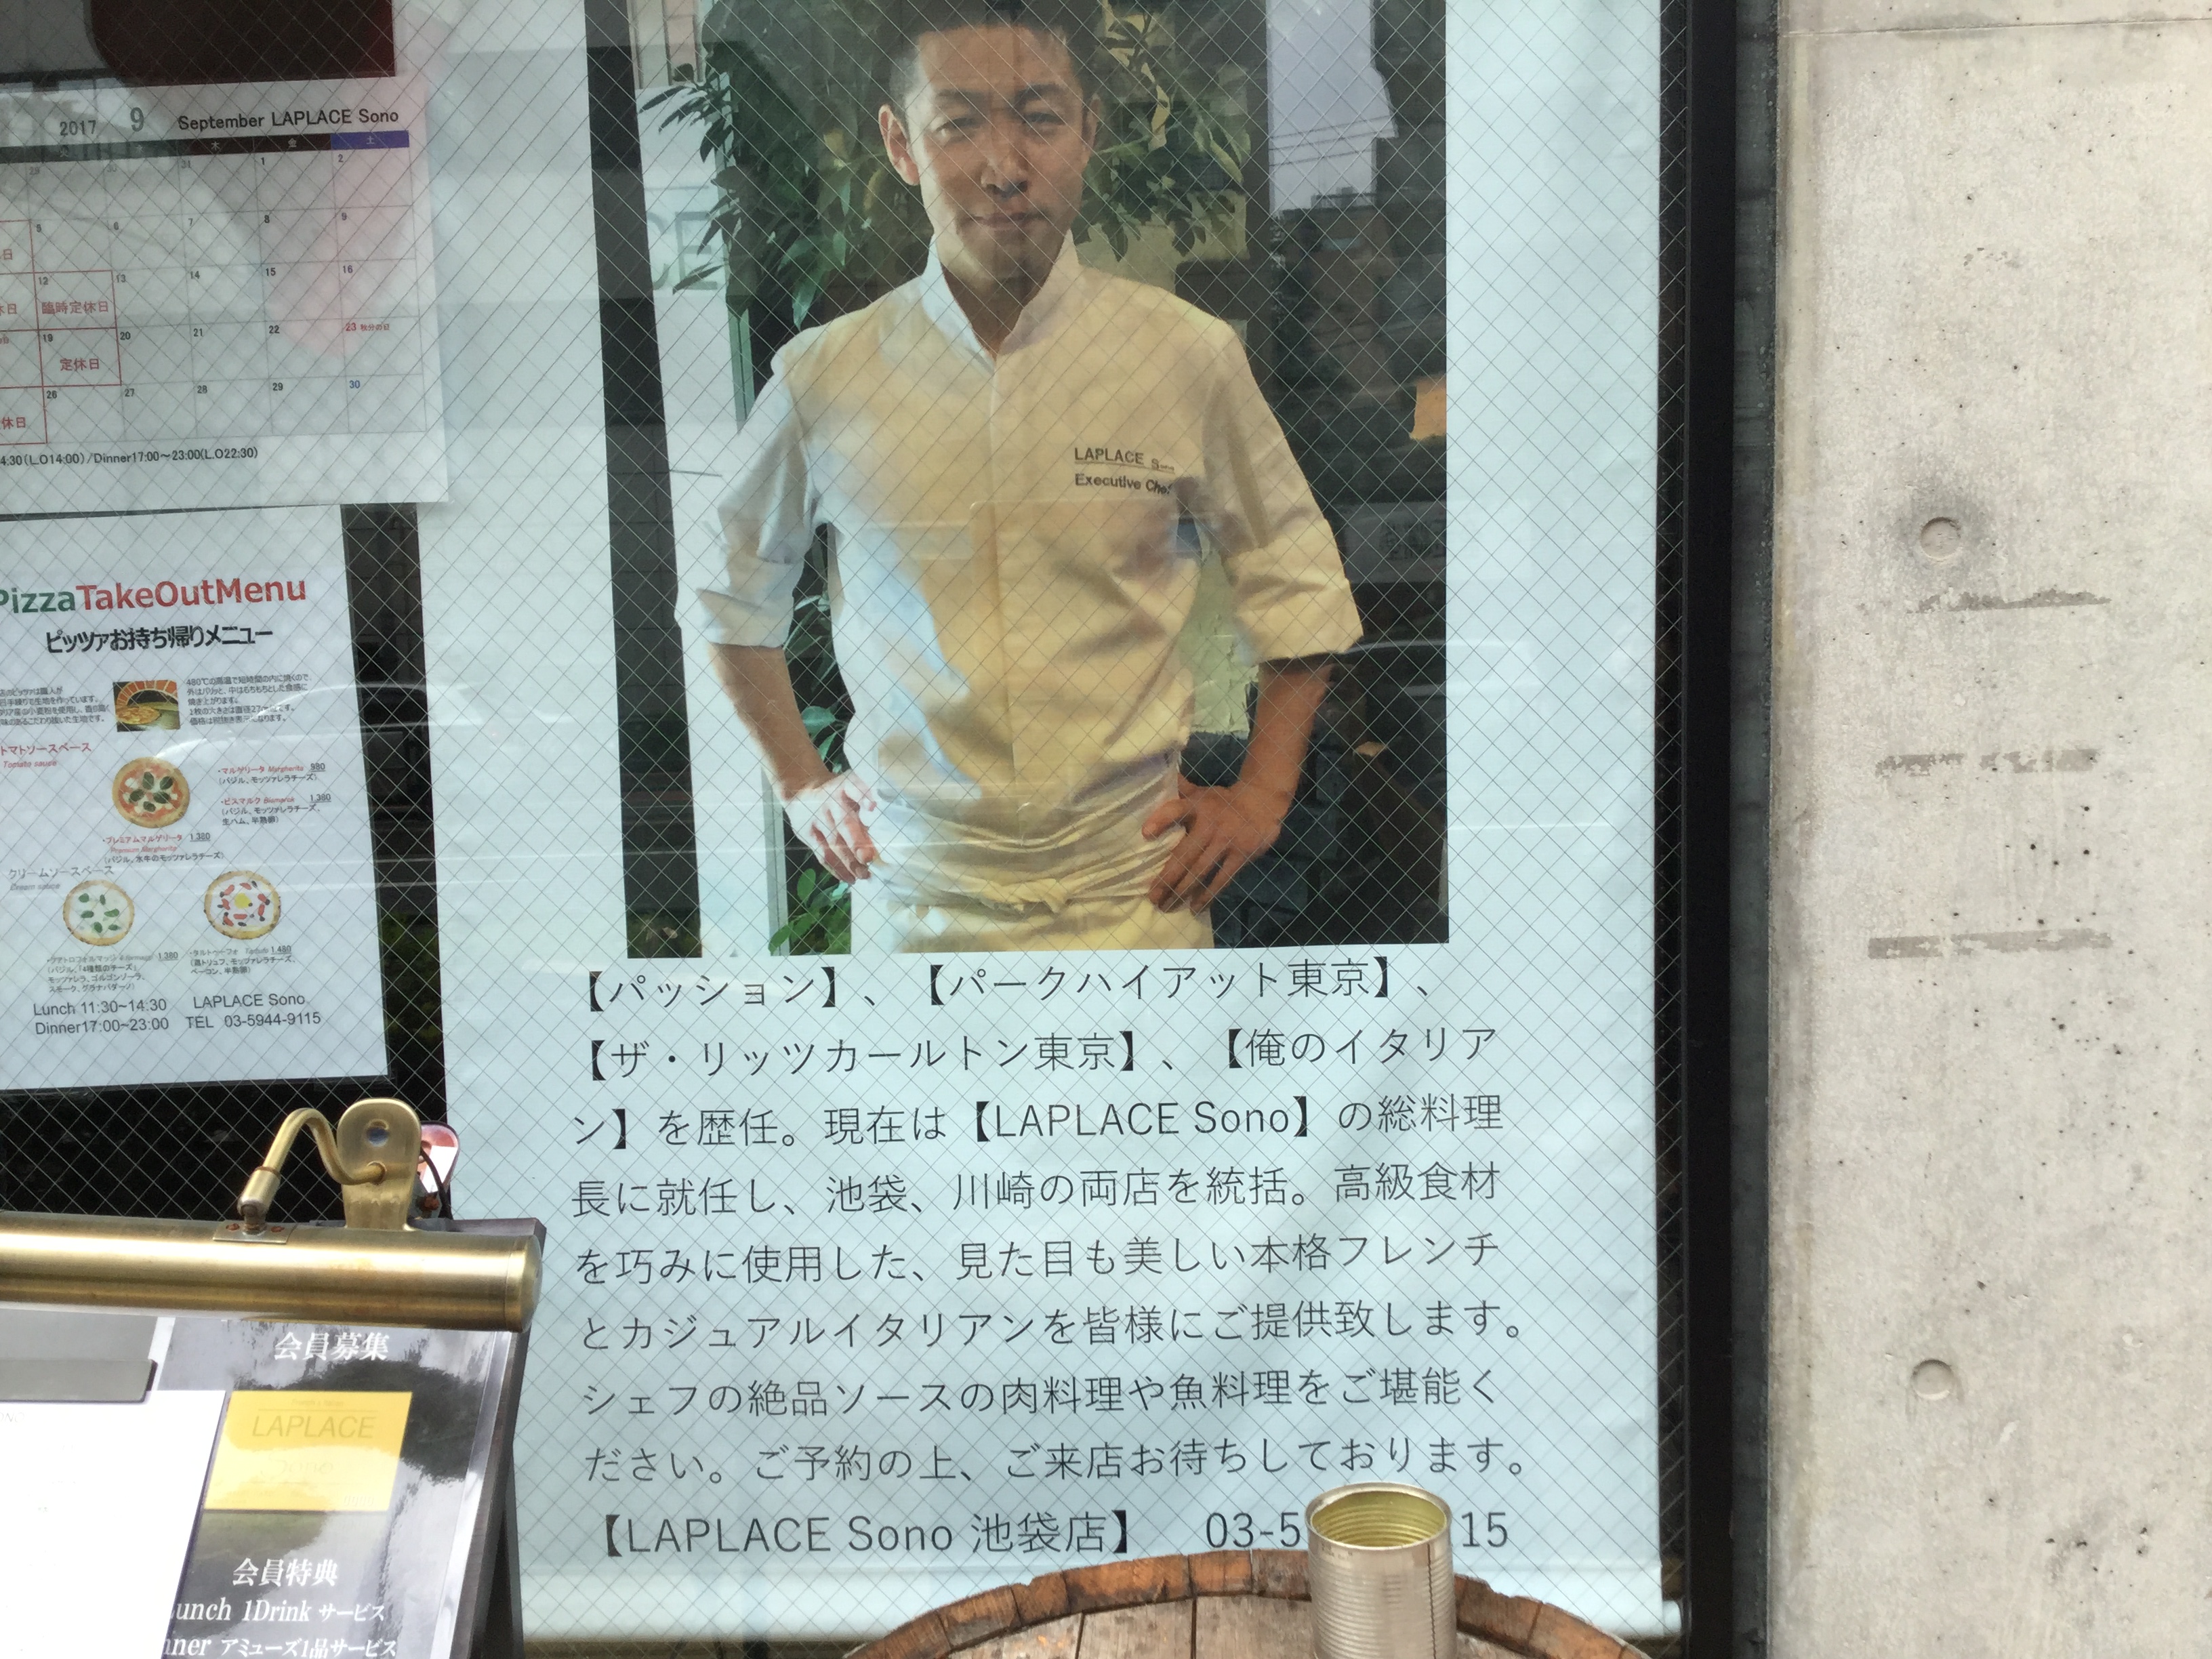 2017 9 September LAPLACE Sono
木 金 土
29 30 31 1 2
5 6 7 8 9
12 13 14 15 16
臨時定休日
19 20 21 22 23 秋分の日
定休日
26 27 28 29 30
休日
4:30(L.O14:00)/Dinner17:00～23:00(L.O22:30)
PizzaTakeOutMenu
ピッツァお持ち帰りメニュー
480℃の高温で短時間の内に焼くので
外はパリっと、中はもちもちとした食感に
焼き上がります。
トマトソースベース
Tomato sauce
・マルゲリータ Margherita 980
(バジル、モッツァレラチーズ)
・ビスマルク Bismarck 1,380
(バジル、モッツァレラチーズ、
生ハム、半熟卵)
・プレミアムマルゲリータ 1,380
Premium Margherita
(バジル、水牛のモッツァレラチーズ)
クリームソースベース
Cream sauce
1,380
(バジル、「4種類のチーズ」
モッツァレラ、ゴルゴンゾーラ、
スモーク、グラナパダーノ)
・タルトゥーフォ Tartufo 1,480
(黒トリュフ、モッツァレラチーズ、
ベーコン、半熟卵)
Lunch 11:30~14:30 LAPLACE Sono
Dinner17:00~23:00 TEL 03-5944-9115
LAPLACE Sono
Executive Chef
【パッション】、【パークハイアット東京】、
【ザ・リッツカールトン東京】、【俺のイタリア
ン】を歴任。現在は【LAPLACE Sono】の総料理
長に就任し、池袋、川崎の両店を統括。高級食材
を巧みに使用した、見た目も美しい本格フレンチ
とカジュアルイタリアンを皆様にご提供致します。
シェフの絶品ソースの肉料理や魚料理をご堪能く
ださい。ご予約の上、ご来店お待ちしております。
【LAPLACE Sono 池袋店】 03-5 15
会員募集
LAPLACE
Sono
会員特典
unch 1Drink サービス
nner アミューズ1品サービス